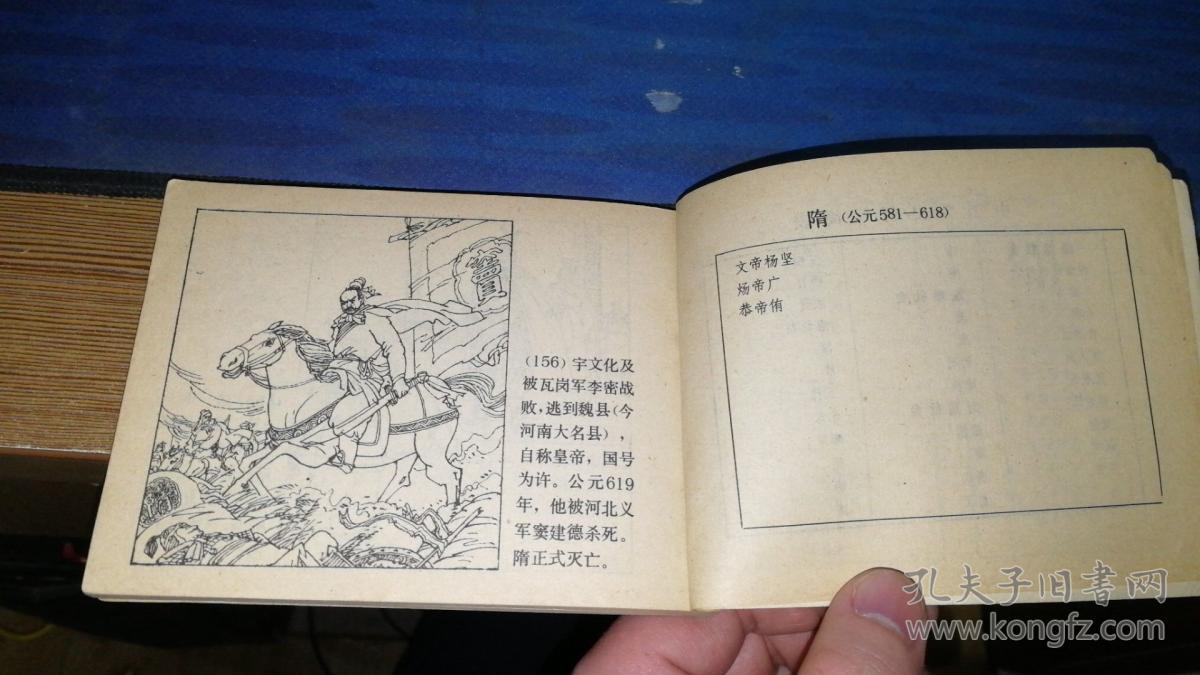 (156)宇文化及
被瓦岗军李密战
败，逃到魏县(今
河南大名县)，
自称皇帝，国号
为许。公元619
年，他被河北义
军窦建德杀死。
隋正式灭亡。
隋 (公元581—618)
文帝杨坚
炀帝广
恭帝侑
孔夫子旧書网
www.kongfz.com